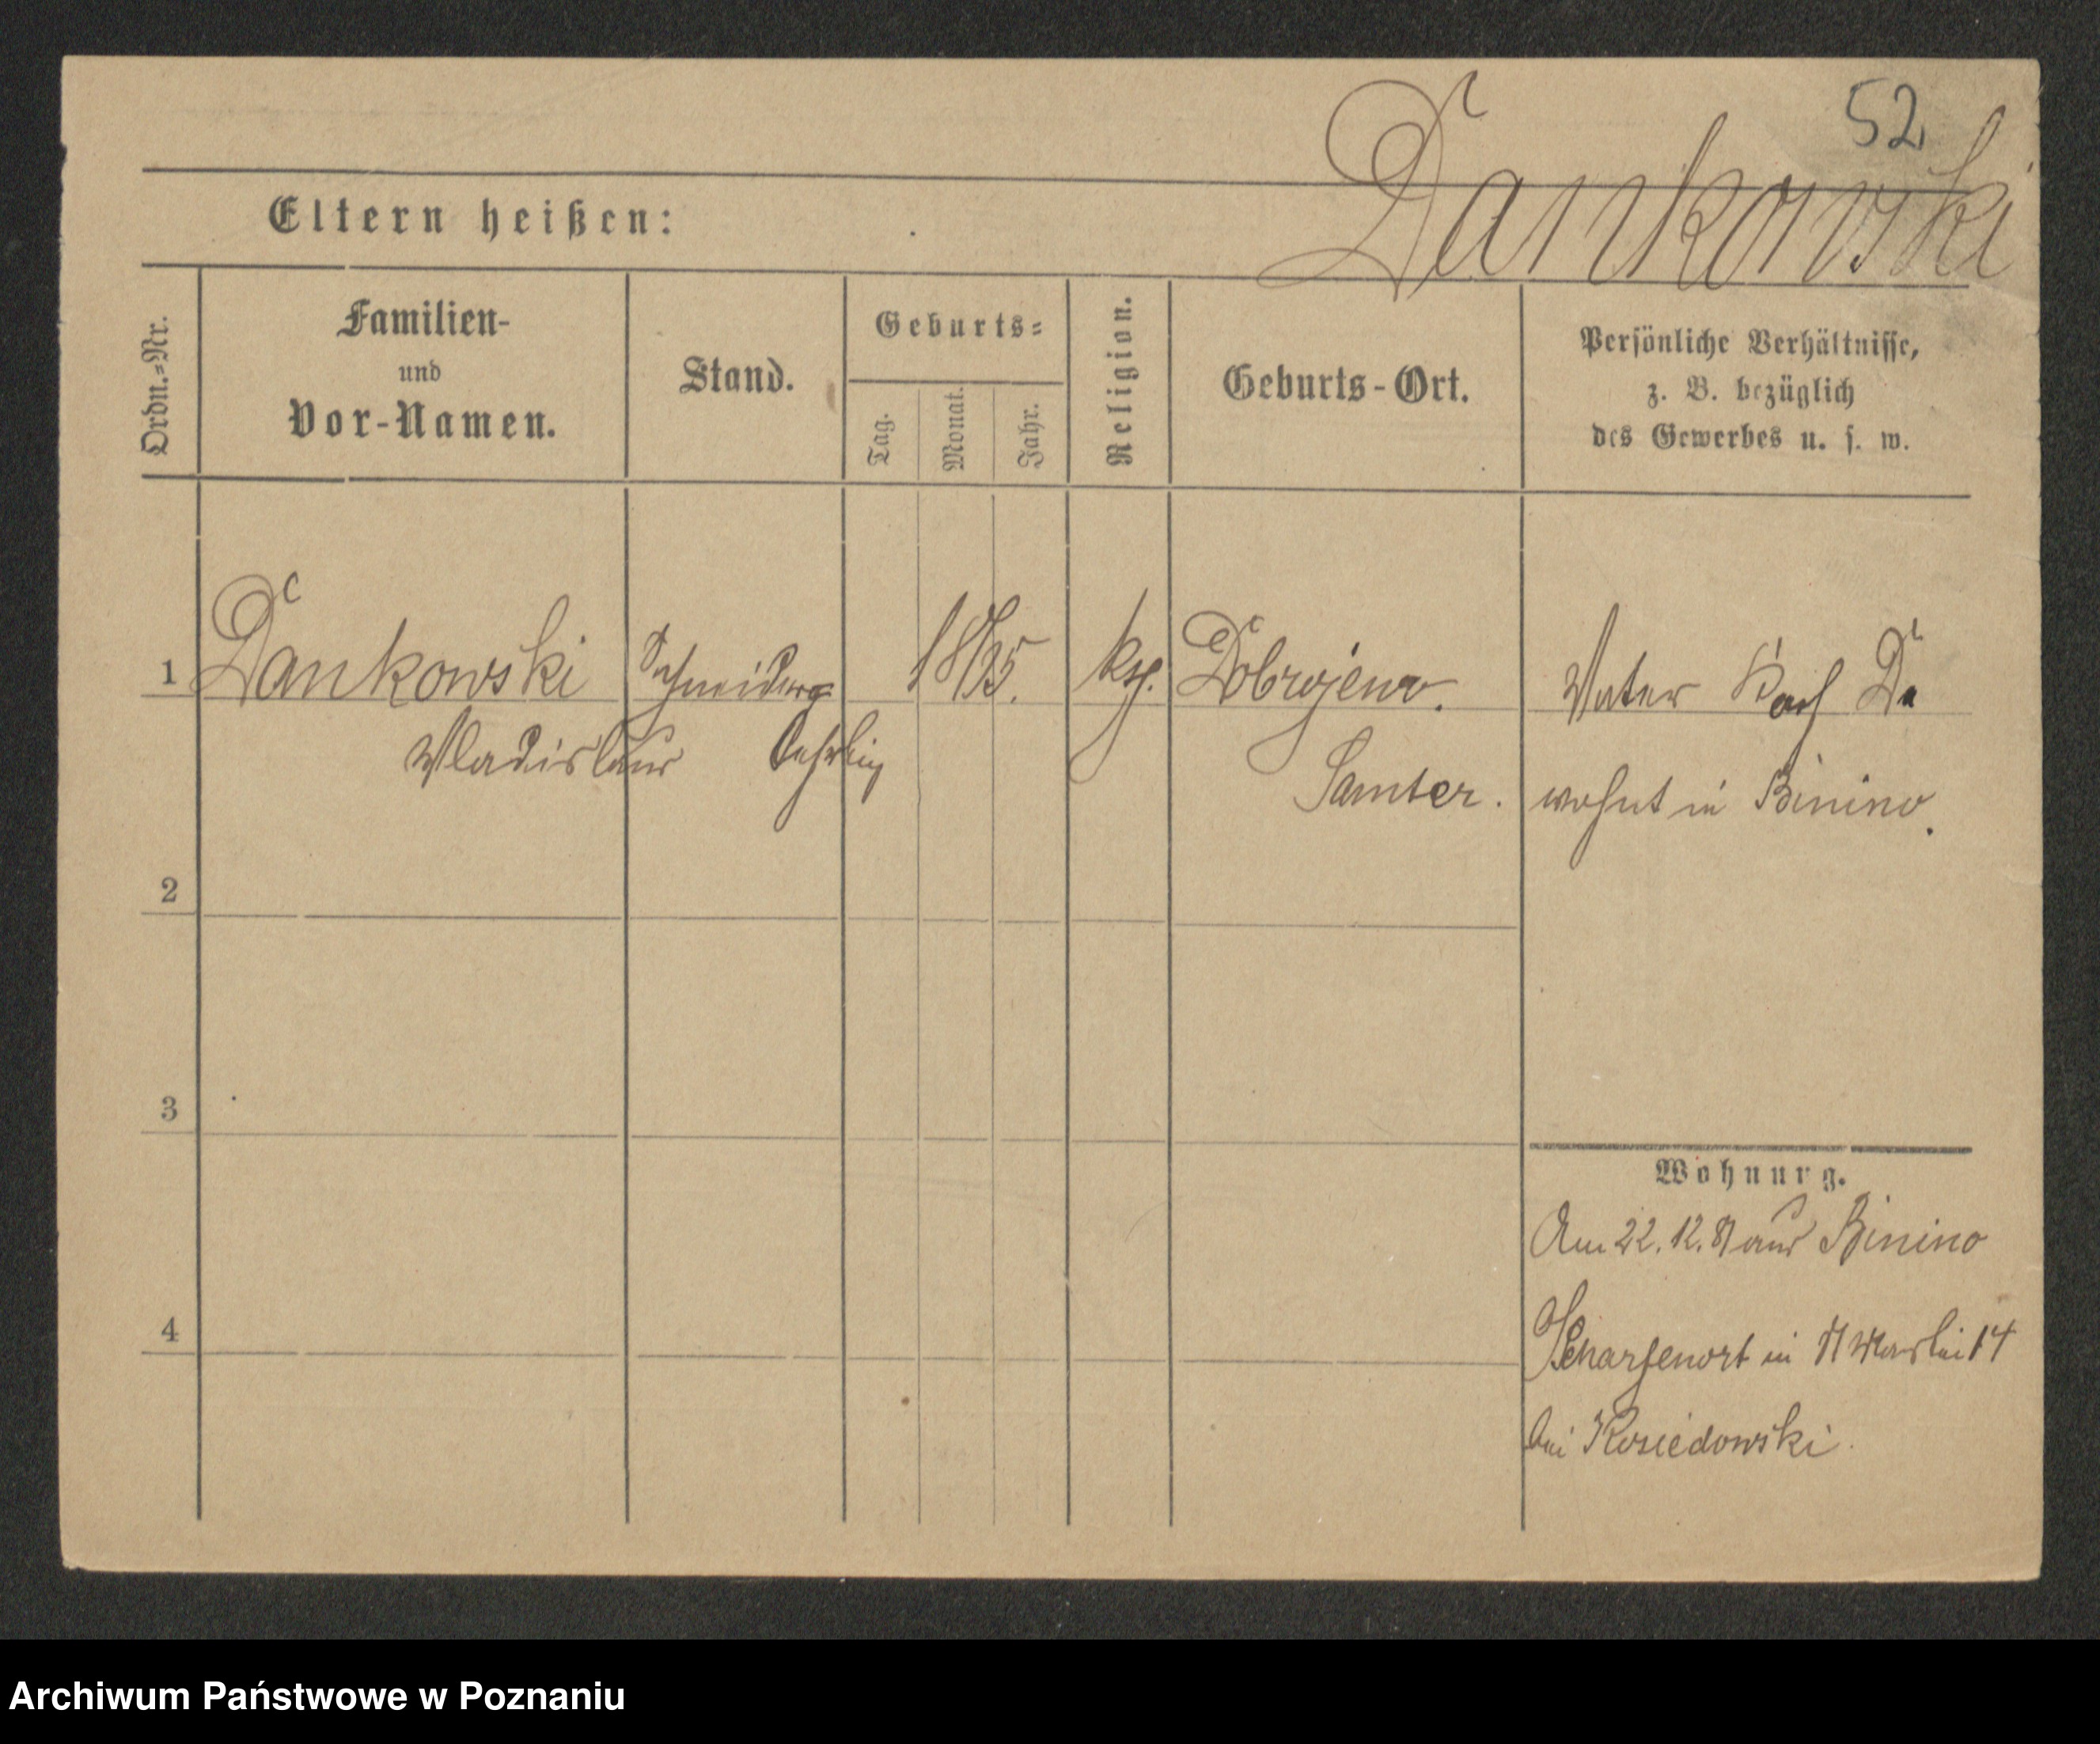 52
Dankowski
Eltern heißen:
Ordn.-Nr.
Familien-
und
Vor-Namen.
Stand.
Geburts-
Tag.
Monat.
Jahr.
Religion.
Geburts-Ort.
Persönliche Verhältnisse,
z. B. bezüglich
des Gewerbes u. s. w.
1 Dankowski Schneider Dobrojewo. Vater D.
Wladislaus Lehrling Samter. wohnt in Binino.
2
3
4
Wohnung.
Am 22. 12. aus Binino
Scharfenort in 14
bei Kosiedowski.
Archiwum Państwowe w Poznaniu